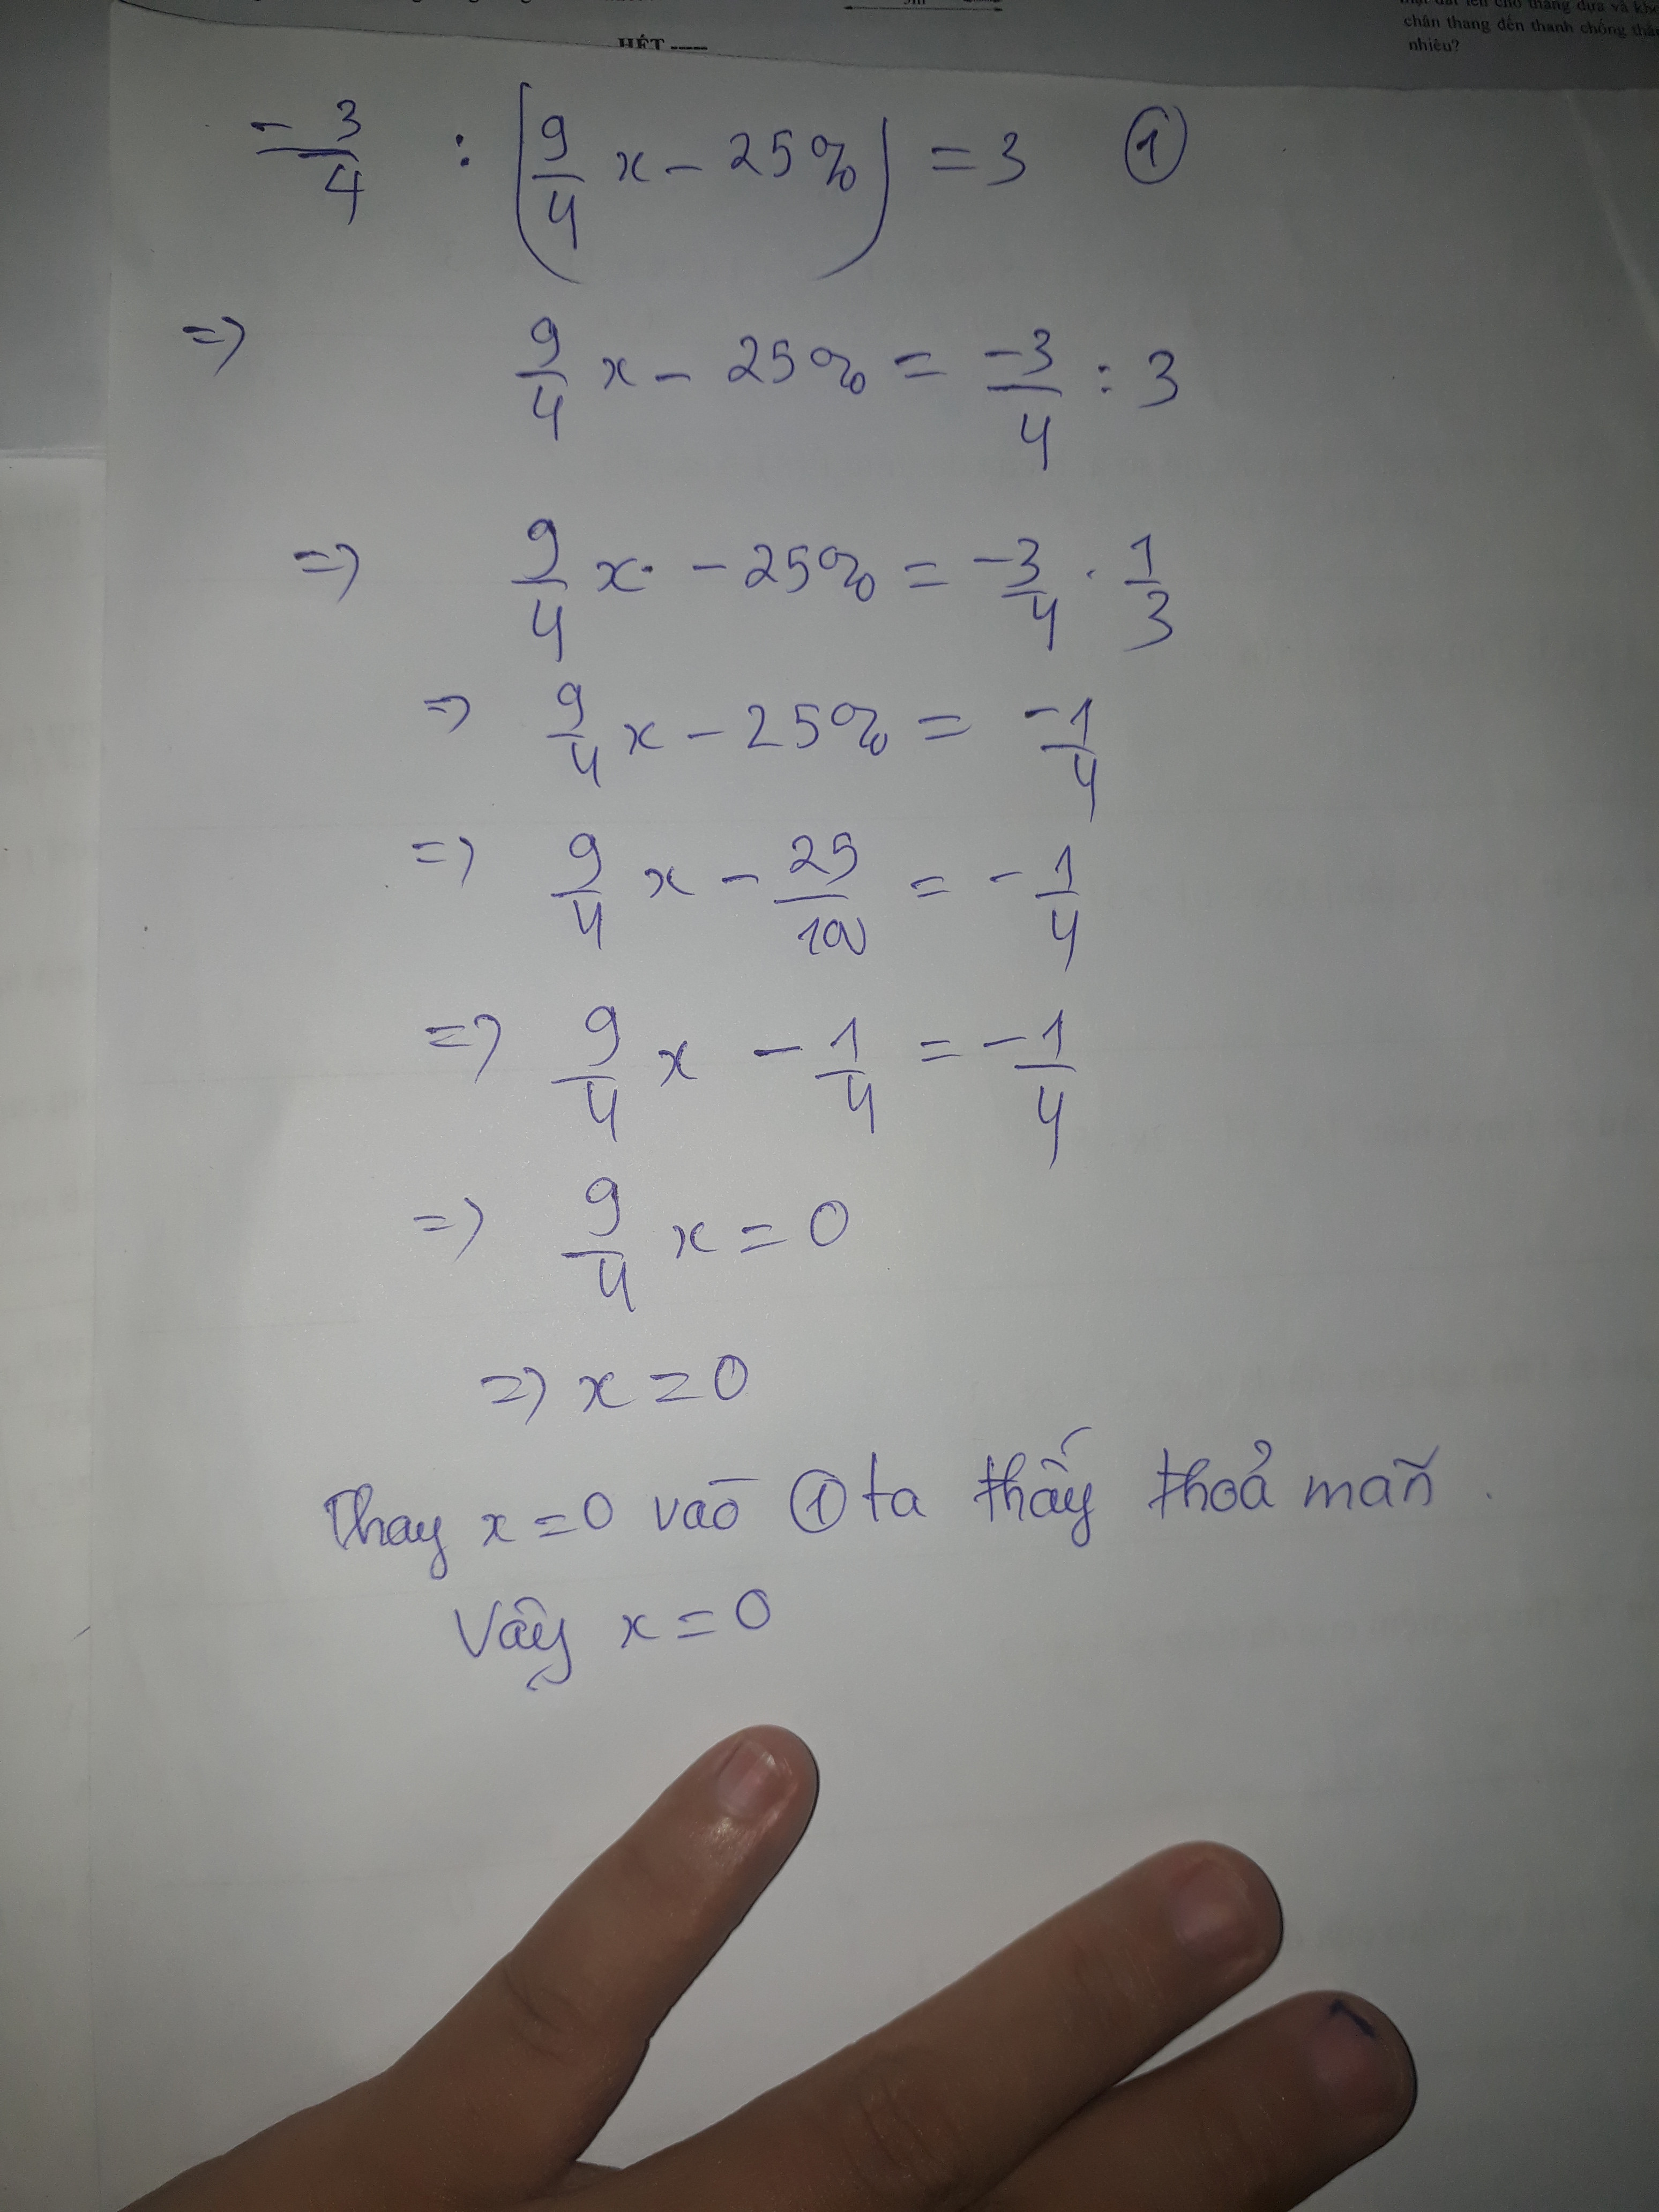 chân thang đến thanh chống
nhiêu?
HẾT ----
-3/4 : (9/4 x - 25%) = 3 ①
=> 9/4 x - 25% = -3/4 : 3
=> 9/4 x - 25% = -3/4 . 1/3
=> 9/4 x - 25% = -1/4
=> 9/4 x - 25/100 = -1/4
=> 9/4 x - 1/4 = -1/4
=> 9/4 x = 0
=> x = 0
Thay x = 0 vào ① ta thấy thoả mãn.
Vậy x = 0